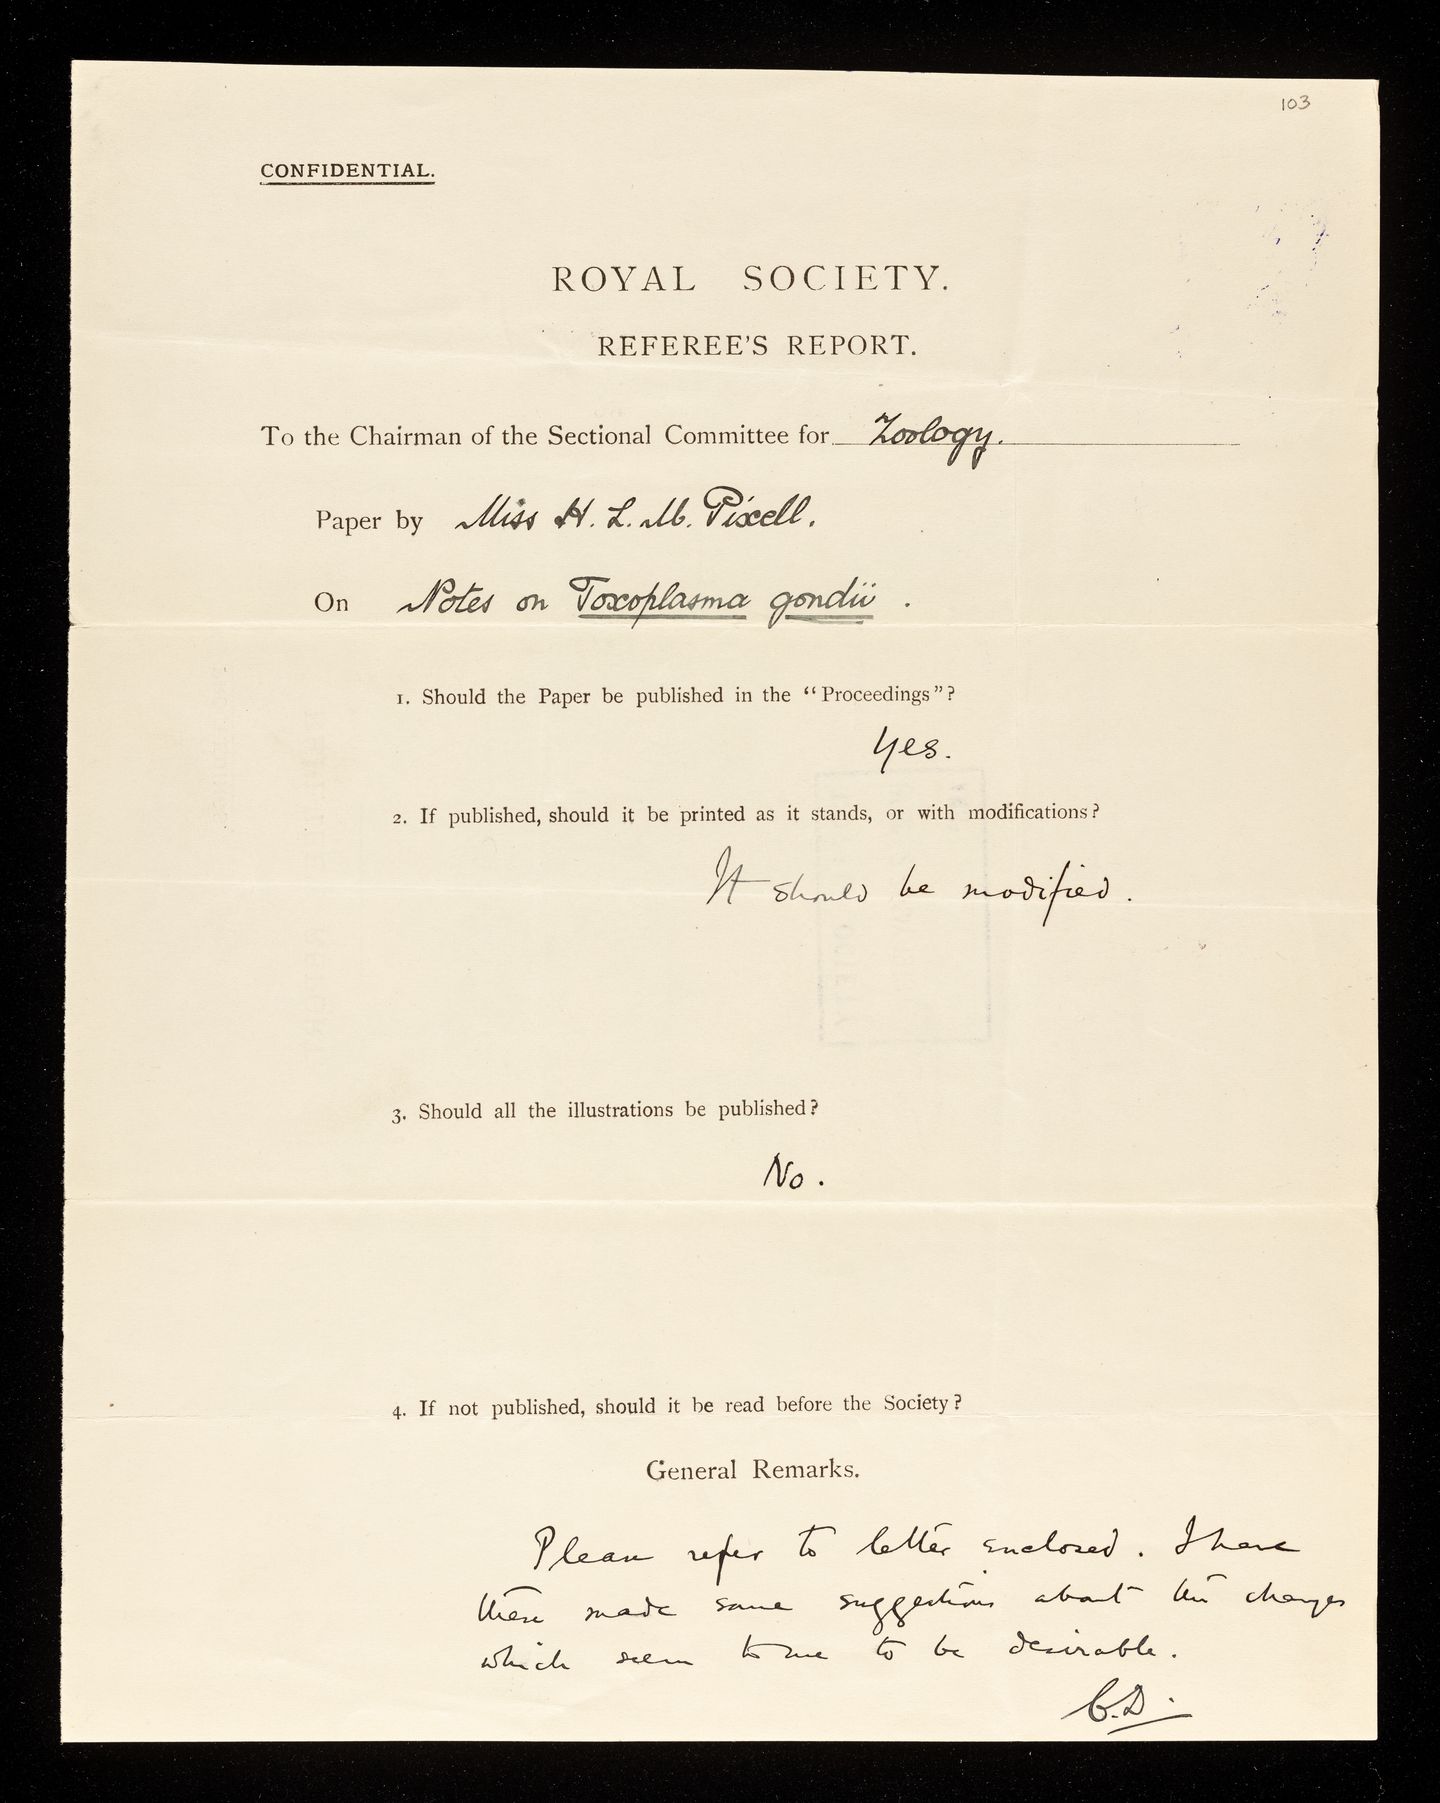 103
CONFIDENTIAL.
ROYAL SOCIETY.
REFEREE'S REPORT.
To the Chairman of the Sectional Committee for Zoology.
Paper by Miss H. L. M. Pixell.
On Notes on Toxoplasma gondii .
1. Should the Paper be published in the "Proceedings"?
Yes.
2. If published, should it be printed as it stands, or with modifications?
It should be modified.
3. Should all the illustrations be published?
No.
4. If not published, should it be read before the Society?
General Remarks.
Please refer to letter enclosed. I have
there made some suggestions about the changes
which seem to me to be desirable.
C.D.